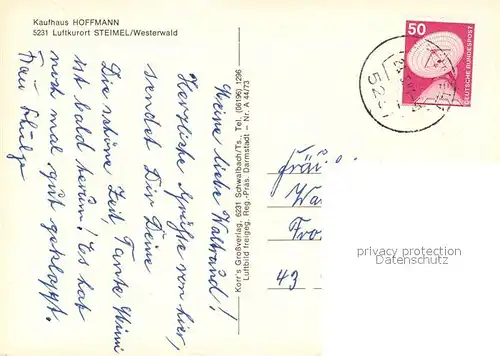 Kaufhaus HOFFMANN
5231 Luftkurort STEIMEL/Westerwald
Meine liebe Waltraud!
Herzliche Grüße von hier,
sendet Dir Deine
Tante Mimi
Die schöne Zeit,
ist bald herum! Es hat
noch mal gut geklappt.
Frau
Korr's Großverlag, 6231 Schwalbach/Ts., Tel. (06196) 1296
Luftbild freigeg. Reg.-Präs. Darmstadt - Nr. A 44/73
50
DEUTSCHE BUNDESPOST
523
Fräu
Wa
Fro
43
privacy protection
Datenschutz